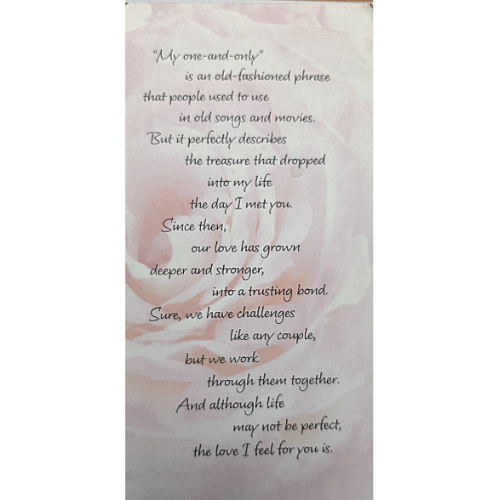 "My one-and-only"
is an old-fashioned phrase
that people used to use
in old songs and movies.
But it perfectly describes
the treasure that dropped
into my life
the day I met you.
Since then,
our love has grown
deeper and stronger,
into a trusting bond.
Sure, we have challenges
like any couple,
but we work
through them together.
And although life
may not be perfect,
the love I feel for you is.